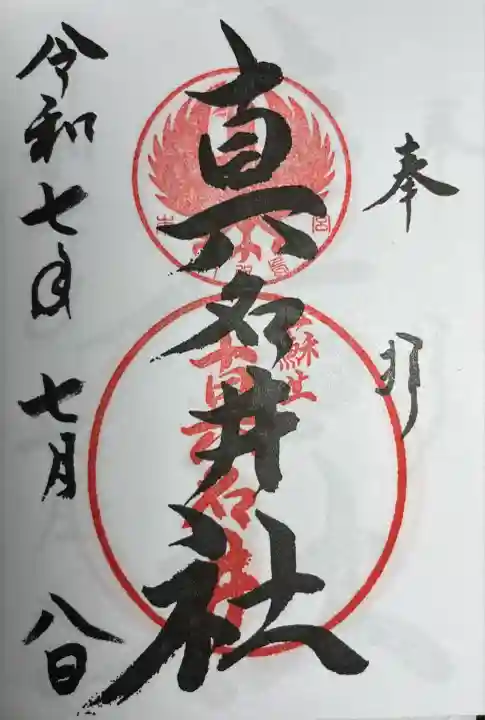 奉拝
真名井社
令和七年七月八日
蘇生